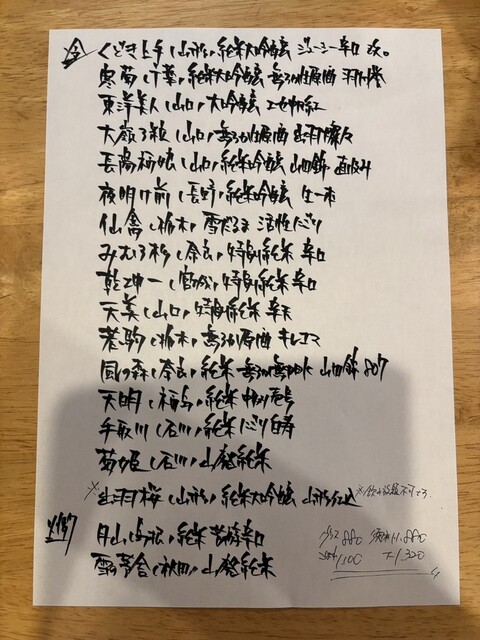 くどき上手(山形)純米大吟醸 ジューシー辛口 改。
寒菊(千葉)純米大吟醸 無ろ過生原酒 羽州誉
東洋美人(山口)大吟醸 
大嶺3粒(山口)無ろ過生原酒 出羽燦々
長陽福娘(山口)純米吟醸 山田錦 直汲み
夜明け前(長野)純米吟醸 生一本
仙禽(栃木)雪だるま 活性にごり
みむろ杉(奈良)特別純米 辛口
乾坤一(宮城)特別純米 辛口
天美(山口)特別純米 辛天
若駒(栃木)無ろ過原酒 キレコマ
風の森(奈良)純米 無ろ過無加水 山田錦 807
天明(福島)純米 中取り壱号
手取川(石川)純米 にごり白寿
菊姫(石川)山廃純米
※出羽桜(山形)純米大吟醸 山形仕込 ※飲み放題不可です。
月山(島根)純米 芳醇辛口
雪の茅舎(秋田)山廃純米
グラス880
1,100 1,320